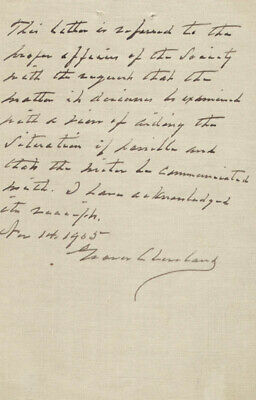 This letter is referred to the
proper officers of the Society
with the request that the
matter it discusses be examined
with a view of aiding the
liberation if possible and
that the writer be communicated
with. I have acknowledged
its receipt.
Nov 14 1905
Grover Cleveland